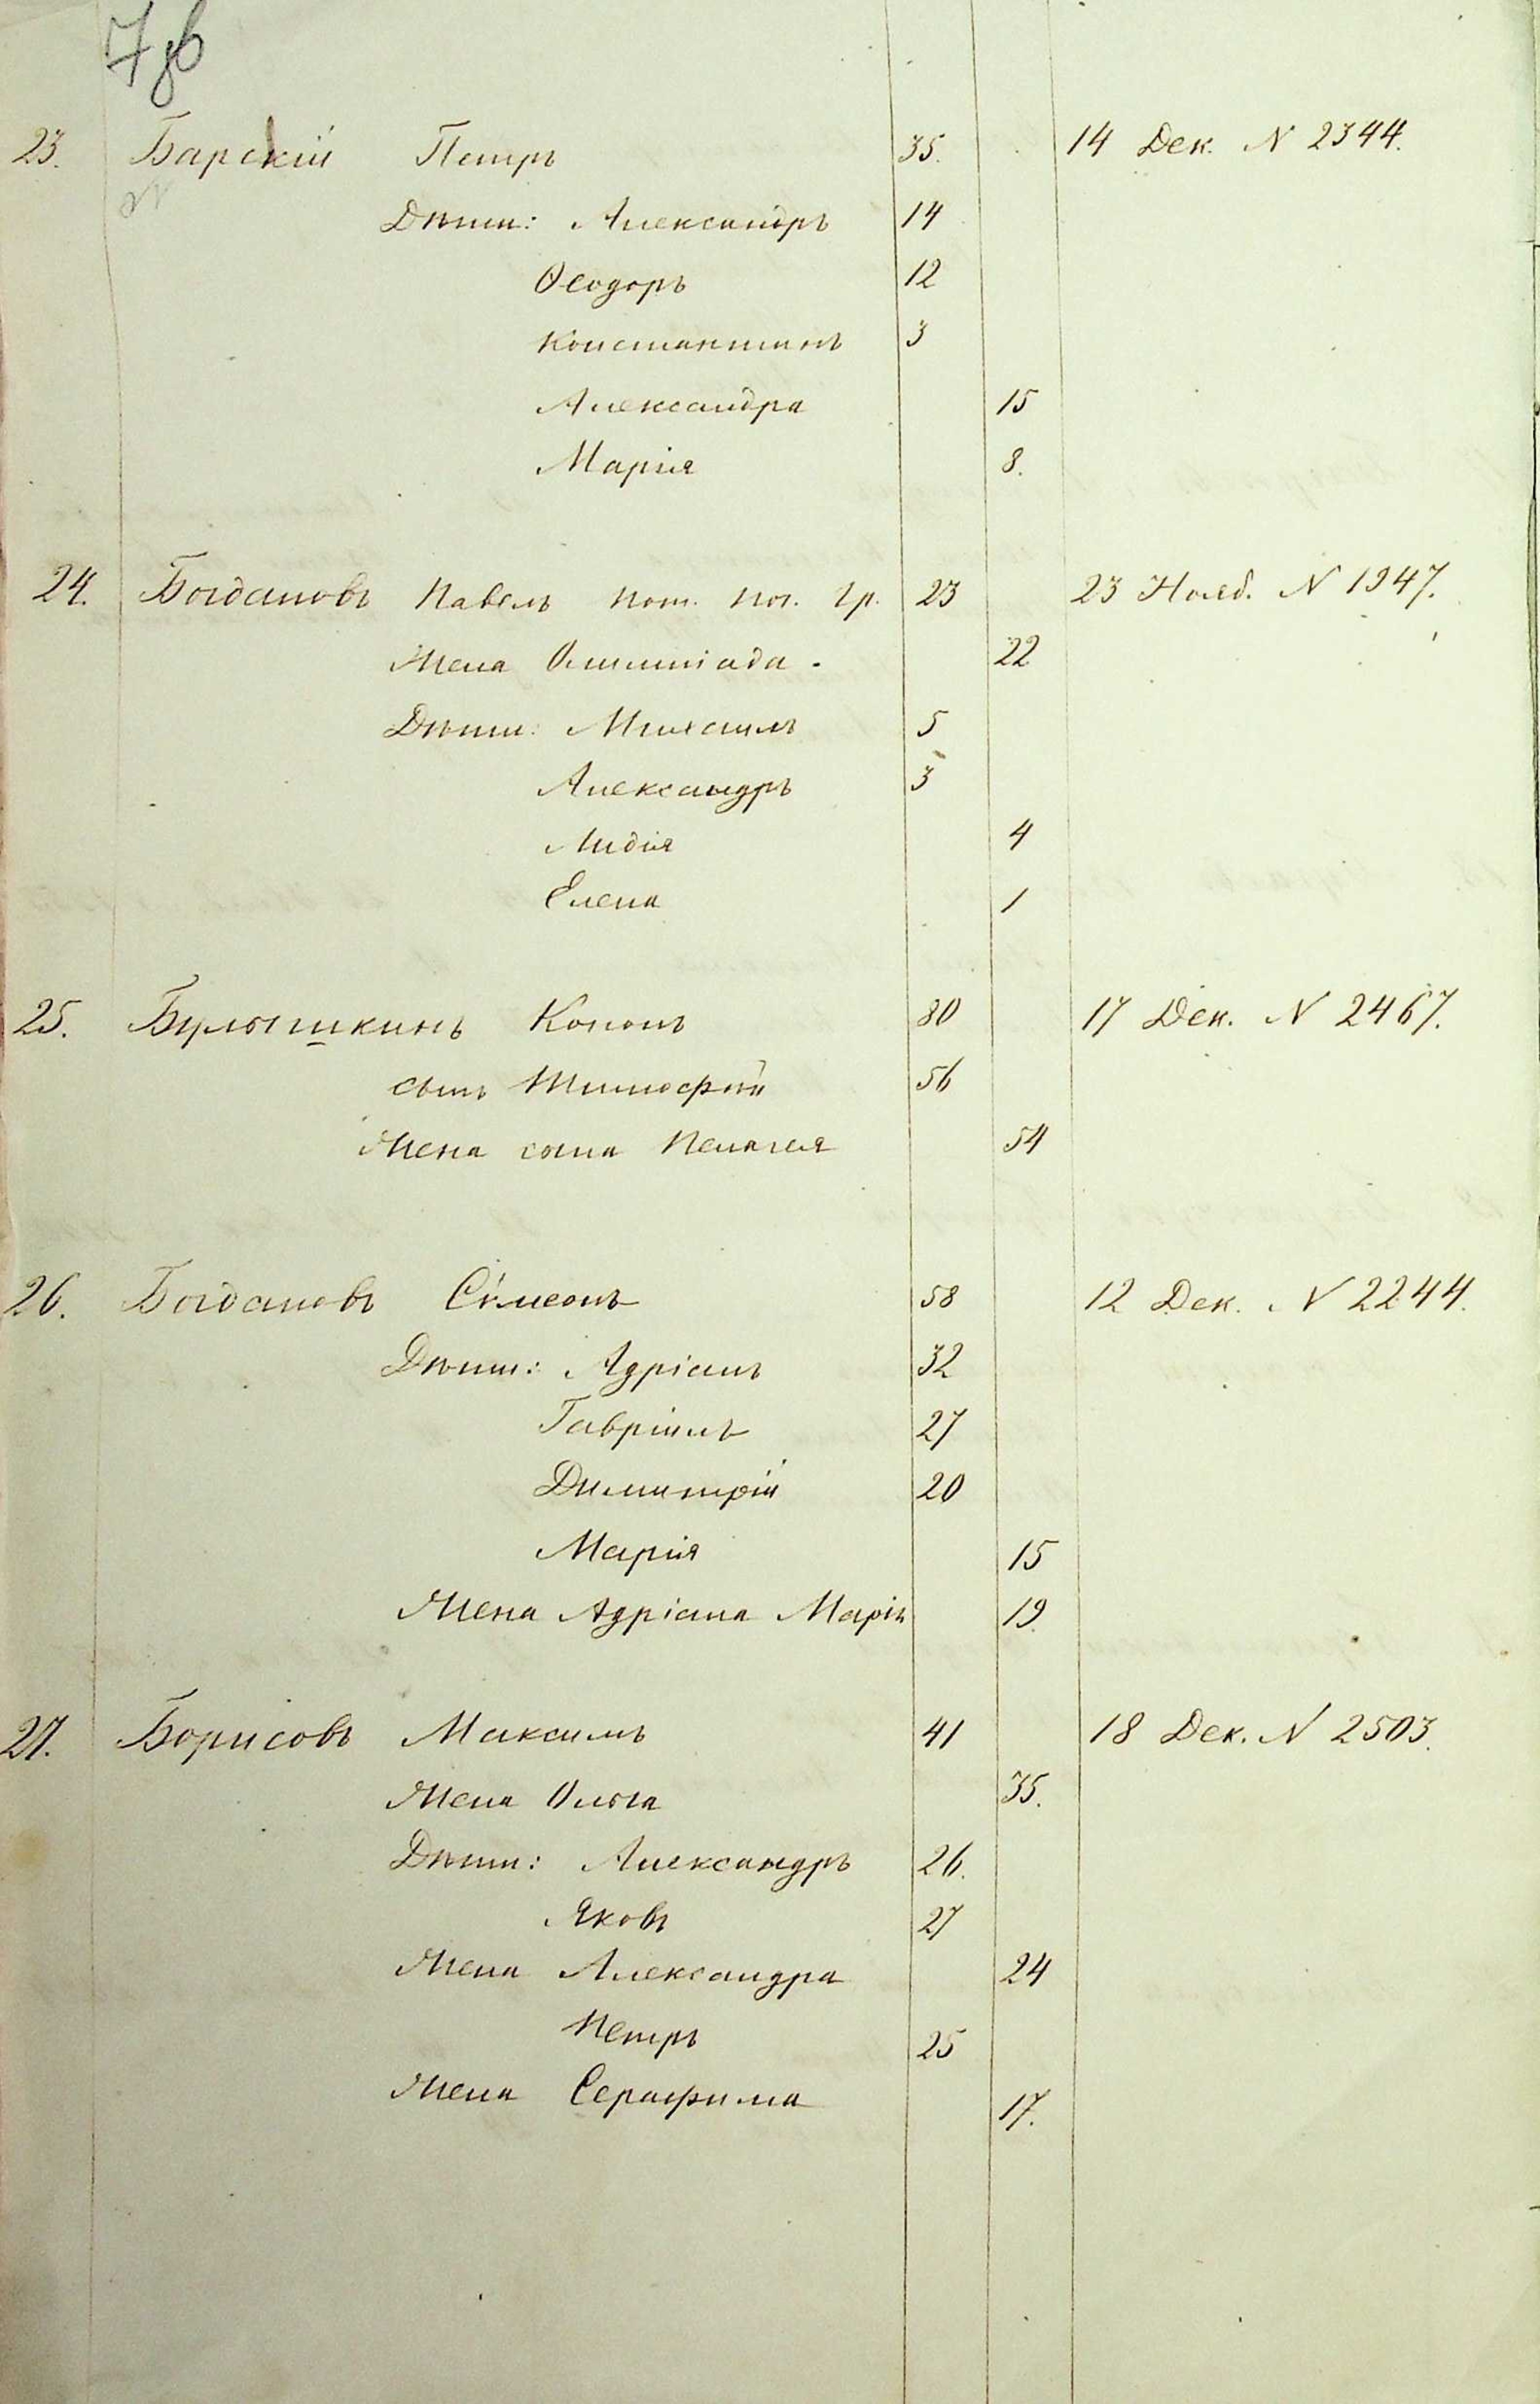 23. Барскій Петръ 35. 14 Дек. N 2344.
N
Дѣти: Александръ 14
Ѳеодоръ 12
Константинъ 3
Александра 15
Марія 8.
24. Богдановъ Павелъ пот. поч. гр. 23 23 Нояб. N 1947.
Жена Олимпіада. 22
Дѣти: Михаилъ 5
Александръ 3
Лидія 4
Елена 1
25. Булышкинъ Кононъ 80 17 Дек. N 2467.
сынъ Тимофей 56
Жена сына Пелагея 54
26. Богдановъ Сѵмеонъ 58 12 Дек. N 2244.
Дѣти: Адріанъ 32
Гавріилъ 27
Димитрій 20
Марія 15
Жена Адріана Марія 19.
27. Борисовъ Максимъ 41 18 Дек. N 2503.
Жена Ольга 35.
Дѣти: Александръ 26.
Яковъ 27
Жена Александра 24
Петръ 25
Жена Серафима 17.